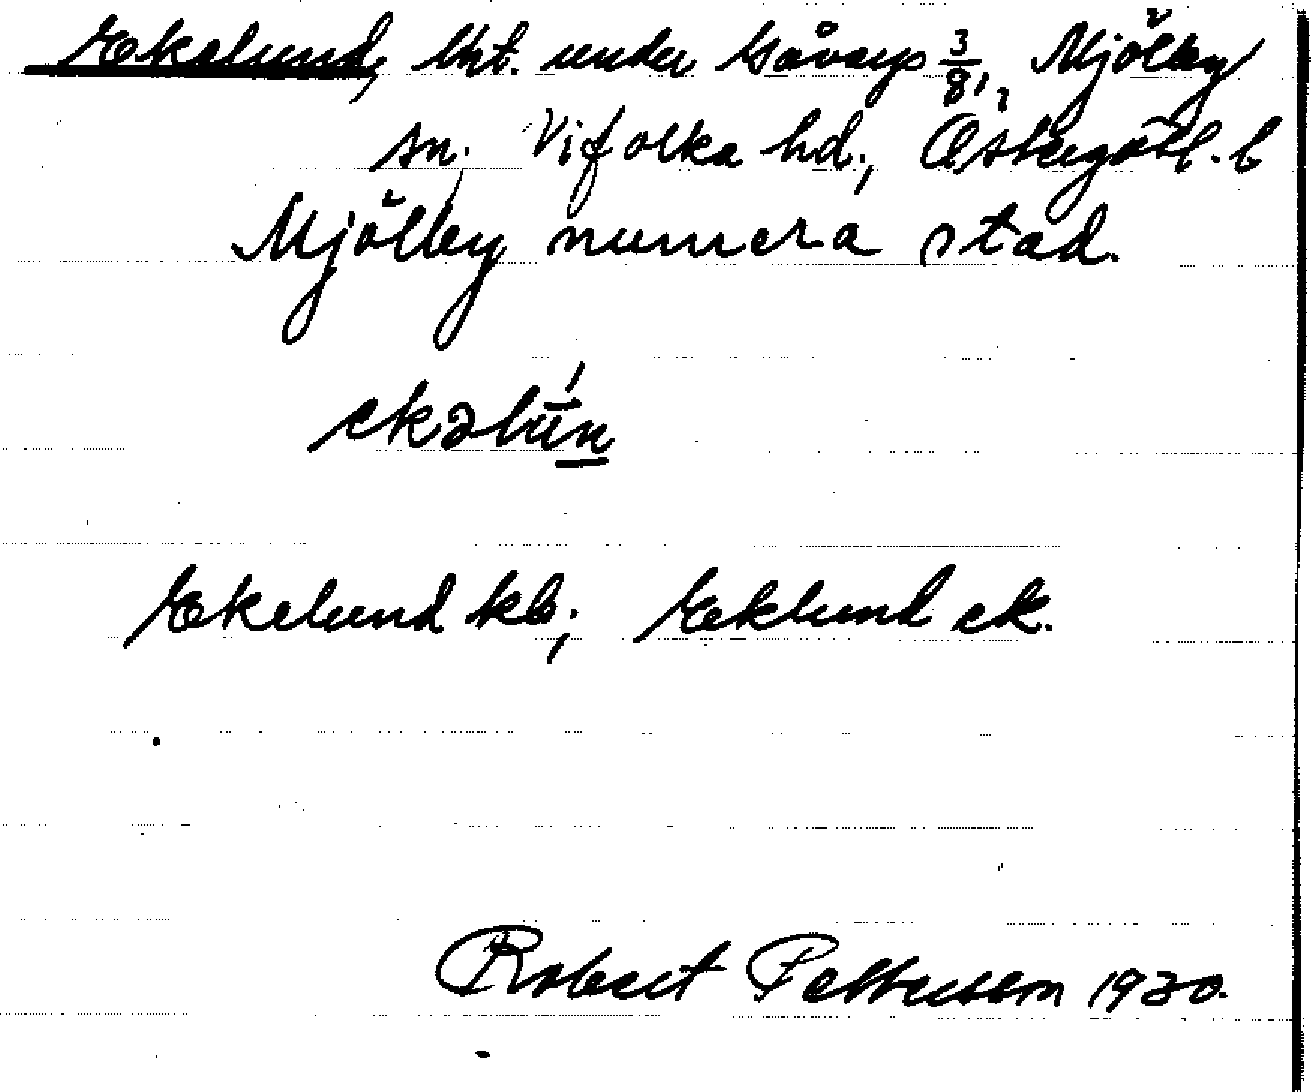 Ekelund, lht. under Gåvarp 3/81, Mjölby
sn. Vifolka hd., Östergötl. l
Mjölby numera stad.
ekəlun
Ekelund kb; Eklund ek.
Robert Pettersson 1930.